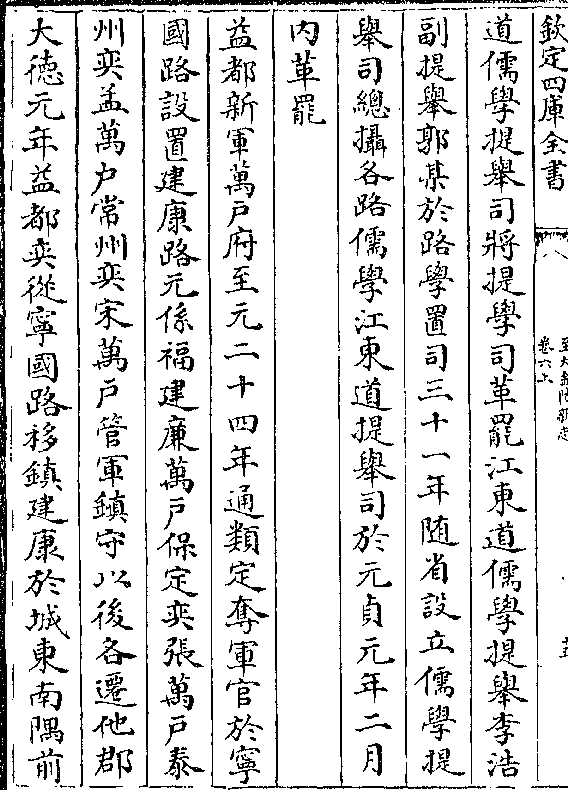 欽定四庫全書
至大金陵新志
卷六上
道儒學提舉司將提學司革罷江東道儒學提舉李浩
副提舉郭某於路學置司三十一年随省設立儒學提
舉司總攝各路儒學江東道提舉司於元貞元年二月
内革罷
益都新軍萬戸府至元二十四年通類定奪軍官於寧
國路設置建康路元係福建廉萬戸保定奕張萬戸泰
州奕孟萬户常州奕宋萬戸管軍鎮守以後各遷他郡
大德元年益都奕從寧國路移鎮建康於城東南隅前